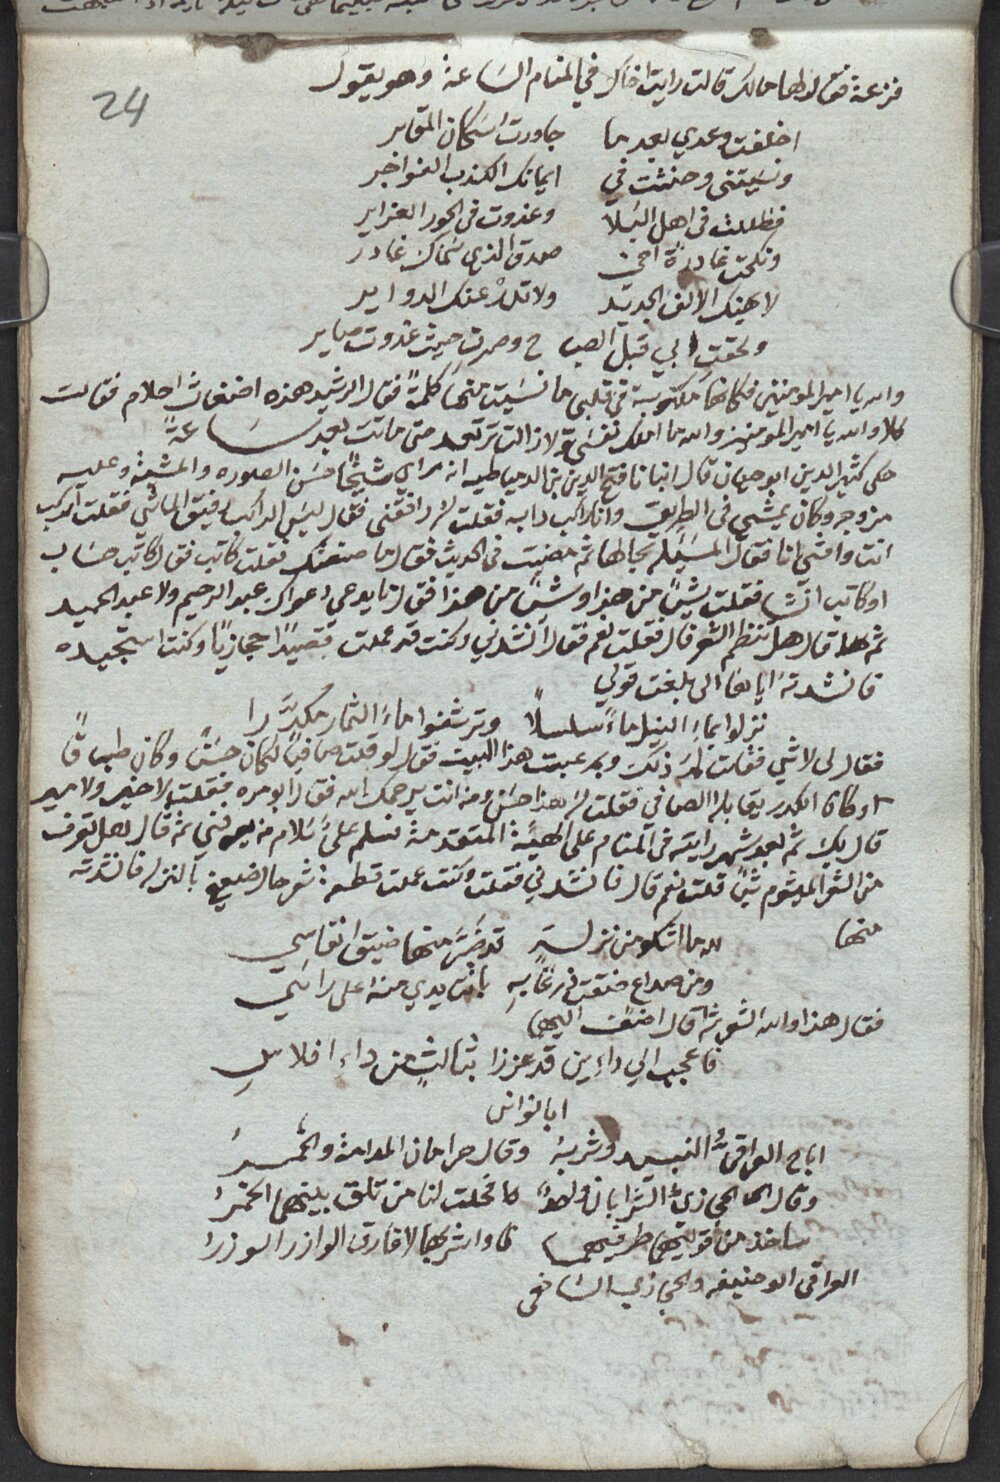 24
فزعة فقال لها مالك قالت رايت اخاك في المنام الساعة وهو يقول
اخلفت وعدي بعد ما جاورت سكان المقابر
ونسيتني وحنثت في ايمانك الكذب الفواجر
فظللت في اهل البلا وغدوت في الحور الغراير
ونكحت غادرة اخي صدق الذي سماك غادر
لا يهنك الالف الجديد ولا تدر عنك الدواير
ولحقت بي قبل الصباح وصرت حيث غدوت صاير
والله يا امير المومنين فكانها مكتوبة في قلبي ما نسيت منها كلمة فقال الرشيد هذه اضغاث احلام فقالت
كلا والله يا امير المومنين والله ما املك نفسي ولا زالت ترتعد حتى ماتت بعد ساعة
حكى كثير الدين ابو حيان قال انبانا فتح الدين بن الدمياطيه انه راى شيخا حسن الصوره والمشية وعليه
مزوجر وكان يمشي في الطريق وانا راكب دابه فقلت له رافقني فقال ليس الراكب رفيق الماشي فقلت اركب
انت وامشي انا فقال المسيلة بحالها ثم مضيت في الحديث فقال ما صنعتك فقلت كاتب فقال كاتب حساب
او كاتب انشا فقلت شيا من هذا وشيا من هذا فقال انا يدعي دعواك عبد الرحيم ولا عبد الحميد
ثم قال هل تنظم الشعر قال فقلت نعم فقال انشدني وكنت قد عملت قصيدا حجازيا وكنت استجيده
فانشدته اياها الى بلغت قولي
نزلوا بماء النيل ماء سلسلا وترشفوا ماء الثمار مكدرا
فقال لي لاشي فقلت لم ذلك وبم عبت هذا البيت فقال لو قلت صافيا لكان حسنا وكان طباقا
او كان الكدر يقابله الصافي فقلت له هذا حسن ومن انت يرحمك الله فقال ابو مره فقلت لا خير ولا مير
قال بك ثم بعد شهر رايته في المنام وعلى الهيئة المتقدمة فسلم على سلام من يعرفني ثم قال هل تعرف
من الشعر الميشوم شيا قلت نعم قال فانشدني فقلت وكنت عملت قطعه شعر حال ضعيفي بالنزله فانشدته
منها لله ما اشكو من نزلة قد ضر منها ضيق انفاسي
ومن صداع ضقت ذرعا به باتت يدي منه على راسي
فقال هذا والله الشعر ثم قال اضف اليها
فاعجب الي داءين قد عززا بثالث من داء افلاس
ابا نواس
اباح العراقي النبيذ وشربه وقال حرامان المدامة والخمر
وقال الحجازي الشرابان واحد فحلت لنا من بينهما الخمر
ساخذ من قوليهما طرفيهما واشربها لا فارق الوازر الوزر
العراقي ابو حنيفه والحجازي الشافعي